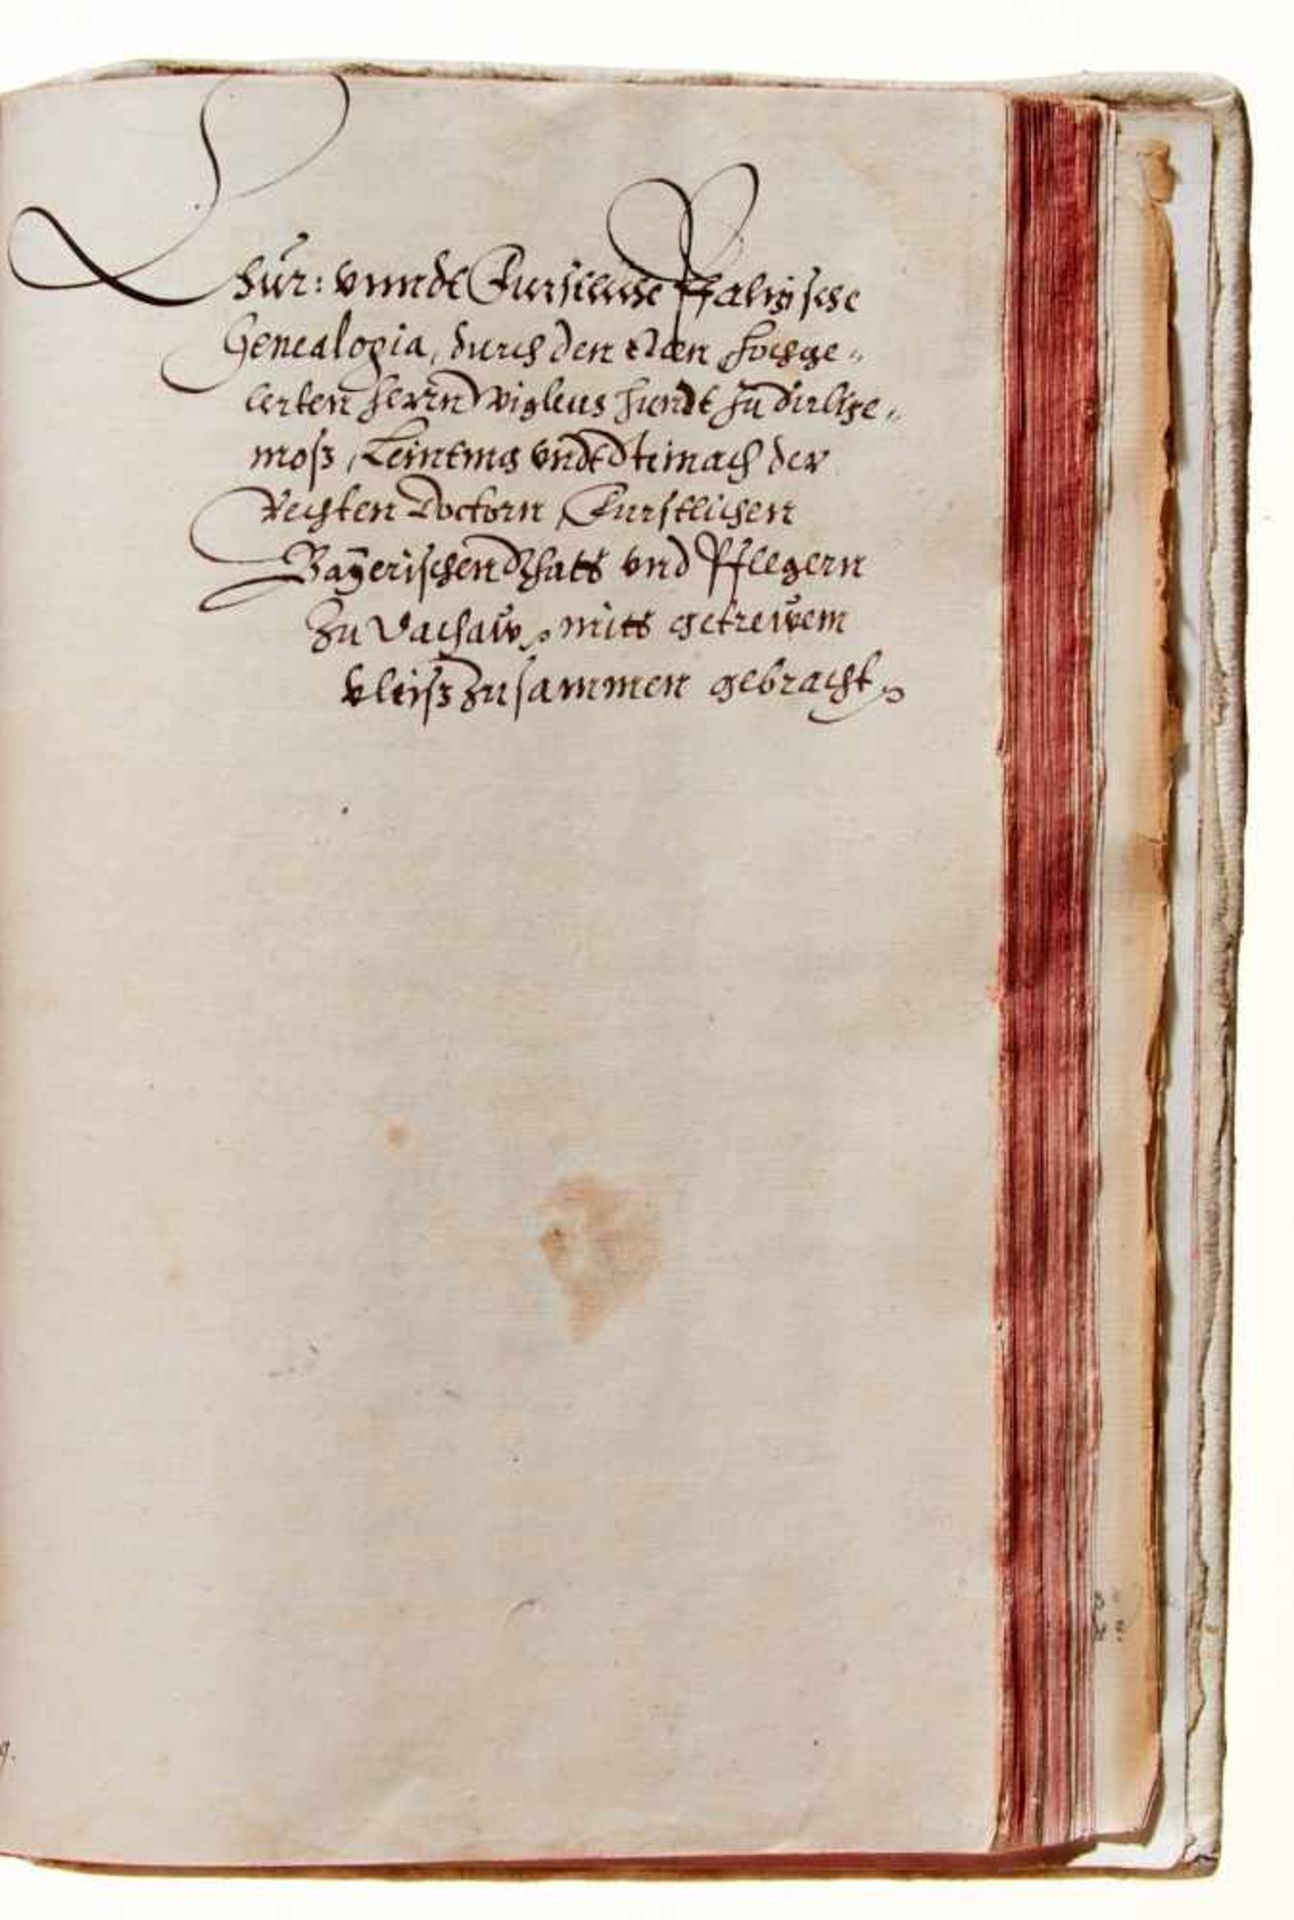 Chür: vnnd Furstliche Pfaltzische
Genealogia, durch den Edlen Hochge„
lerten Herrn Wigleus Hundt zu Sultze„
moß, Lentings vnd Steinach der
Rechten Doctorn, Furstlichen
Bayerischen Rhatts vnd Pflegern
Zu Dachaw, mitt getrewem
vleiß zusammen gebracht.
9.